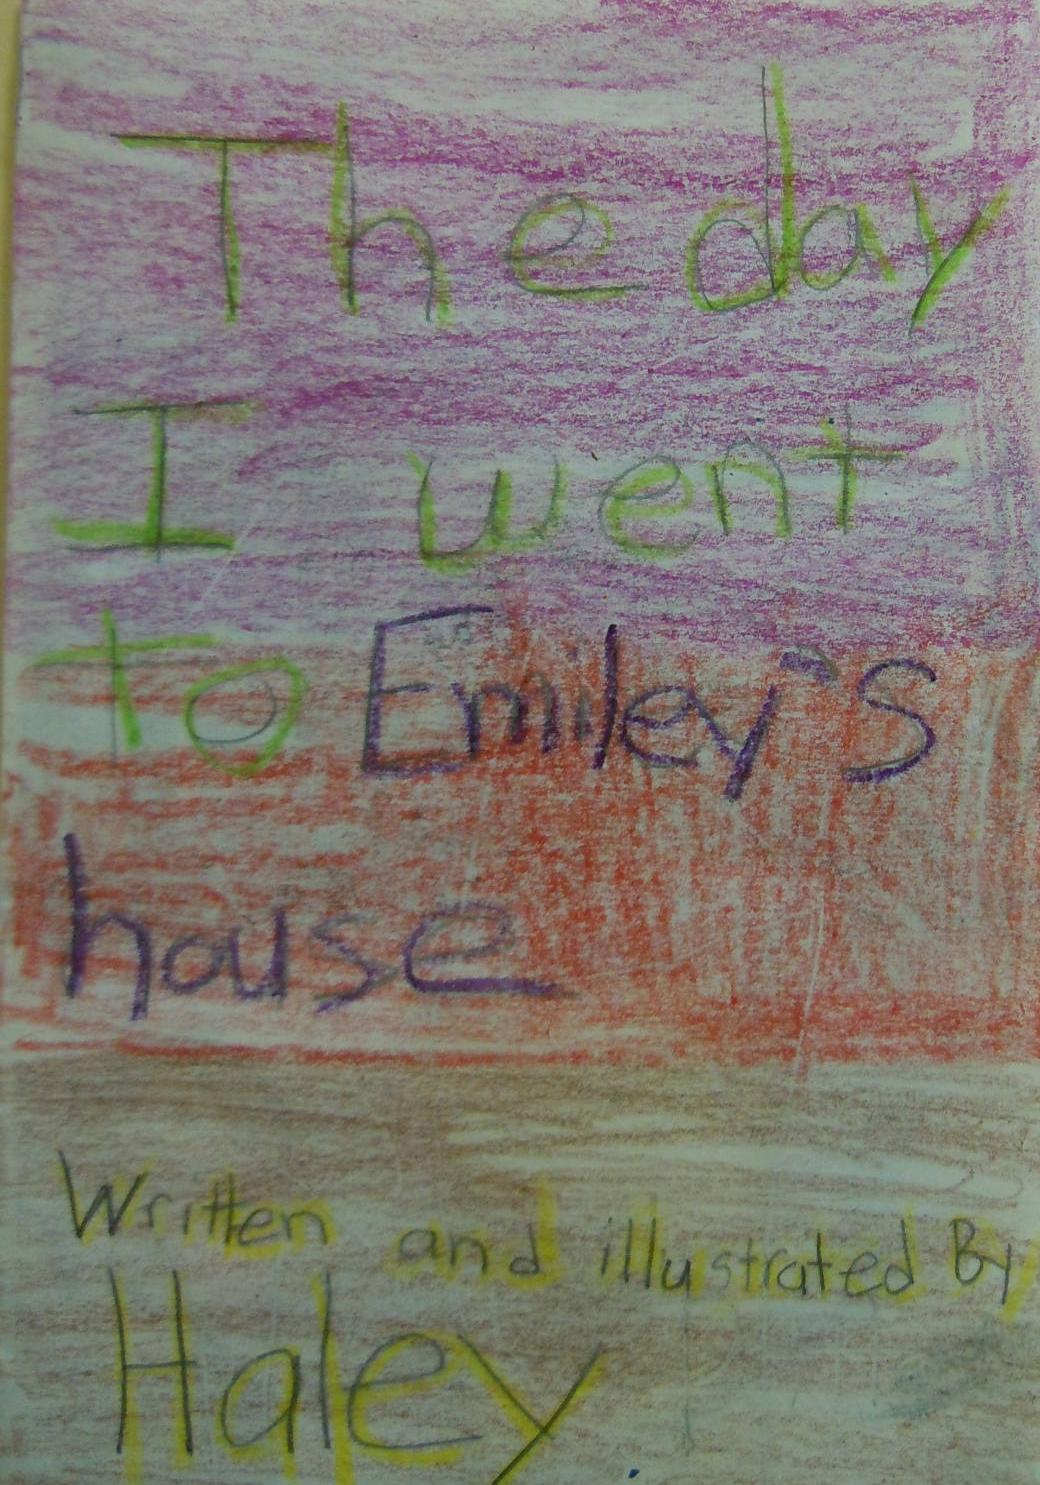 The day
I went
to Emiley's
house
Written and illustrated By
Haley